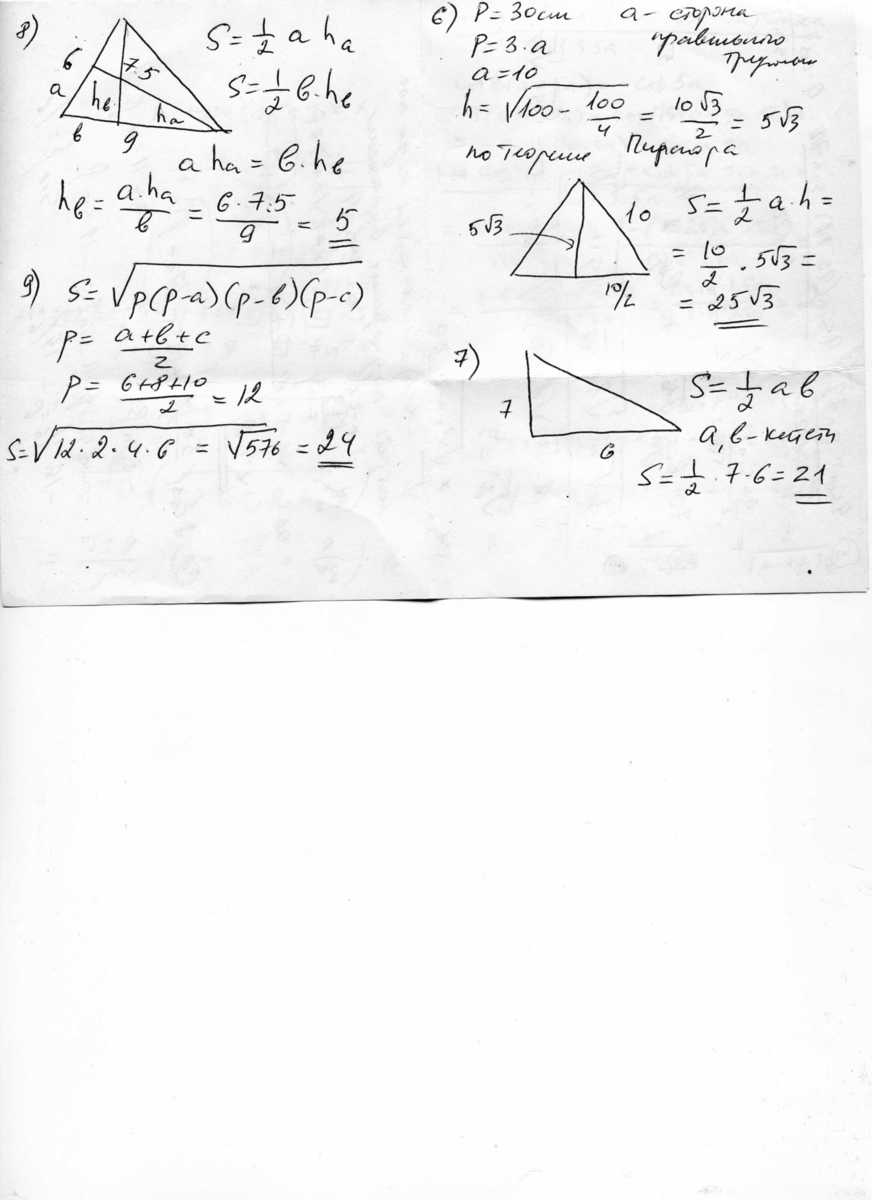 8)
6
7.5
a
hв
ha
в
9
S = 1/2 a ha
S = 1/2 в · hв
a ha = в · hв
hв = a·ha/в = 6 · 7.5/9 = 5
9) S = √p(p-a)(p-в)(p-c)
p = a+в+c/2
p = 6+8+10/2 = 12
S = √12 · 2 · 4 · 6 = √576 = 24
6) P = 30 см a - сторона
P = 3 · a правильного
a = 10
h = √100 - 100/4 = 10√3/2 = 5√3
по теореме Пифагора
5√3
10
10/2
S = 1/2 a · h =
= 10/2 · 5√3 =
= 25√3
7)
7
6
S = 1/2 a в
a, в - катеты
S = 1/2 · 7 · 6 = 21